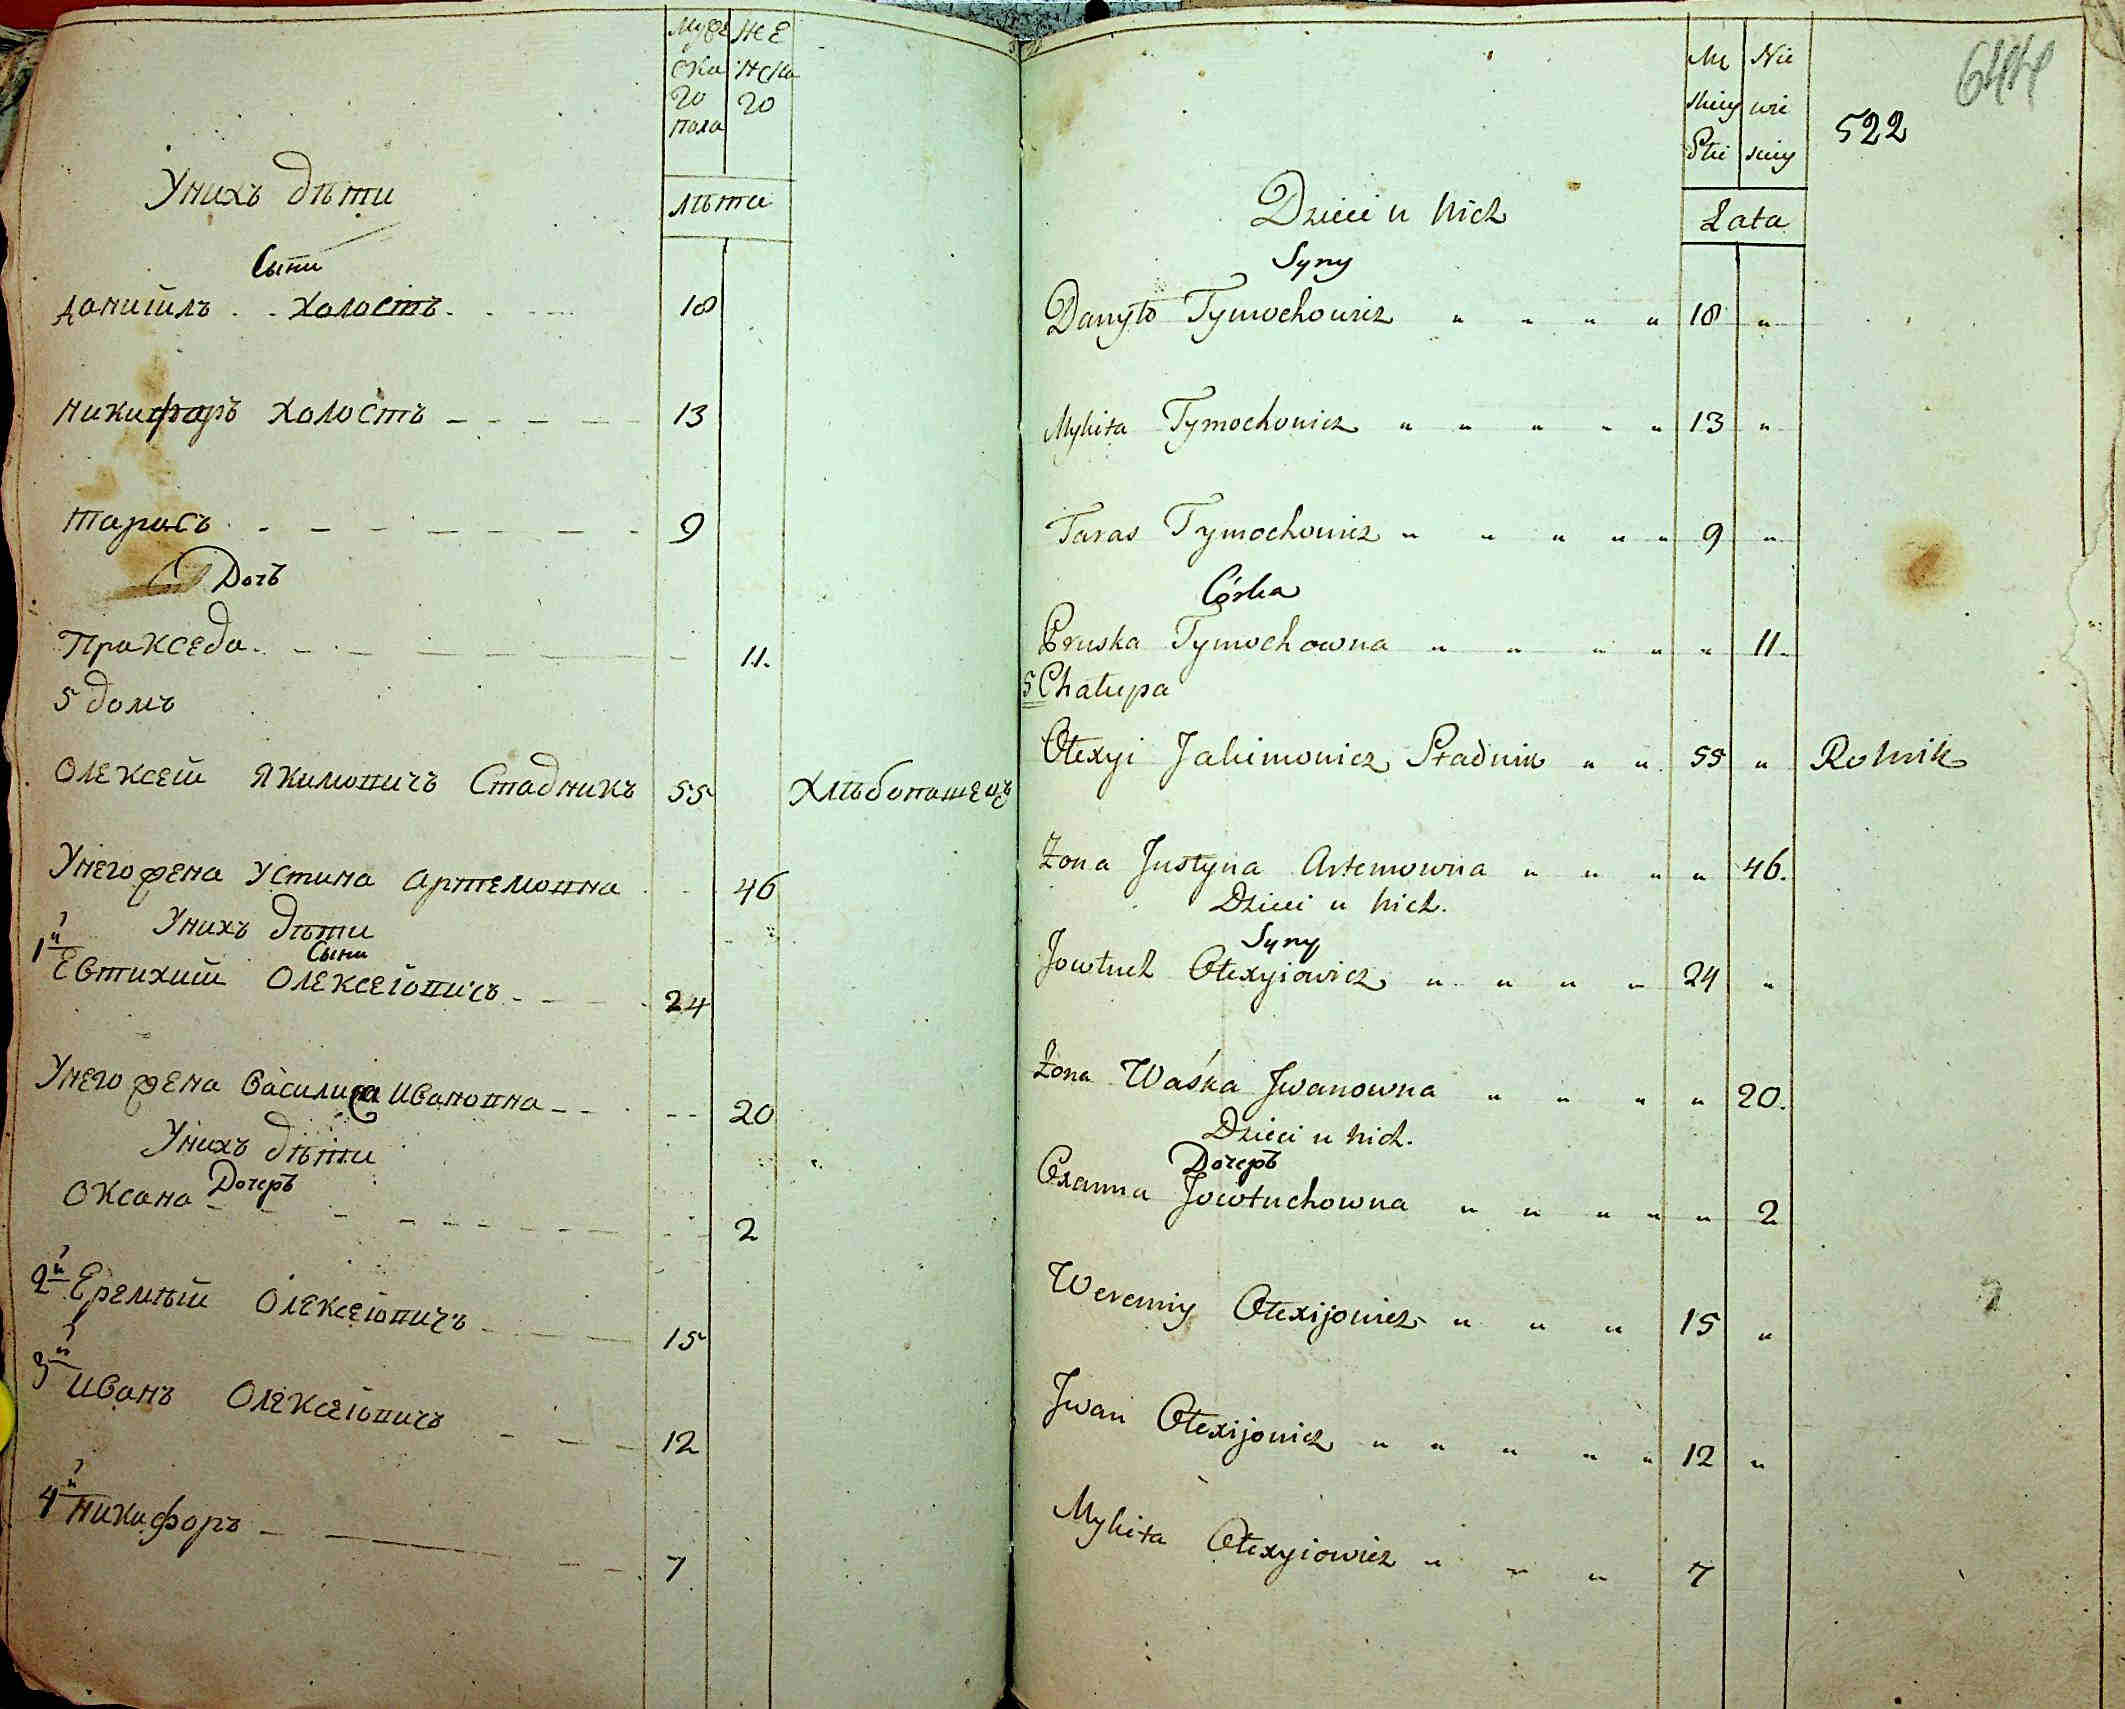 Муже
ска
го
пола
Же
нска
го
лѣта
Унихъ дѣти
Сыни
Даниилъ Холостъ 18
Никифоръ Холостъ 13
Тарасъ 9
Дочъ
Пракседа 11.
5 домъ
Олексей Якимовичъ Стадникъ 55 Хлѣбопашецъ
Унего жена Устина Артемовна 46
Унихъ дѣти
Сыни
1й Евтихий Олексеіовичъ 24
Унего жена Василиса Ивановна 20
Унихъ дѣти
Дочеръ
Оксана 2
2й Еремѣй Олексеіовичъ 15
3й Иванъ Олексеіовичъ 12
4й Никифоръ 7
Mę
skiey
Płci
Nie
wie
sciey
Lata
522
644
Dzieci u nich
Syny
Danyło Tymochowicz " " " " 18 "
Mykita Tymochowicz " " " " " 13 "
Taras Tymochowicz " " " " " 9 "
Córka
Pruska Tymochowna " " " " " 11.
5 Chałupa
Ołexyi Jakimowicz Stadnik " " 55 " Rolnik
Żona Justyna Artemowna " " " " 46.
Dzieci u nich.
Syny
Jowtuch Ołexyiowicz " " " " 24 "
Żona Waśka Jwanowna " " " " 20.
Dzieci u nich.
Дочеръ
Oxanna Jowtuchowna " " " " " 2
Weremiy Ołexijowicz " " " 15 "
Jwan Ołexijowicz " " " " " 12 "
Mykita Ołexyiowicz " " " 7